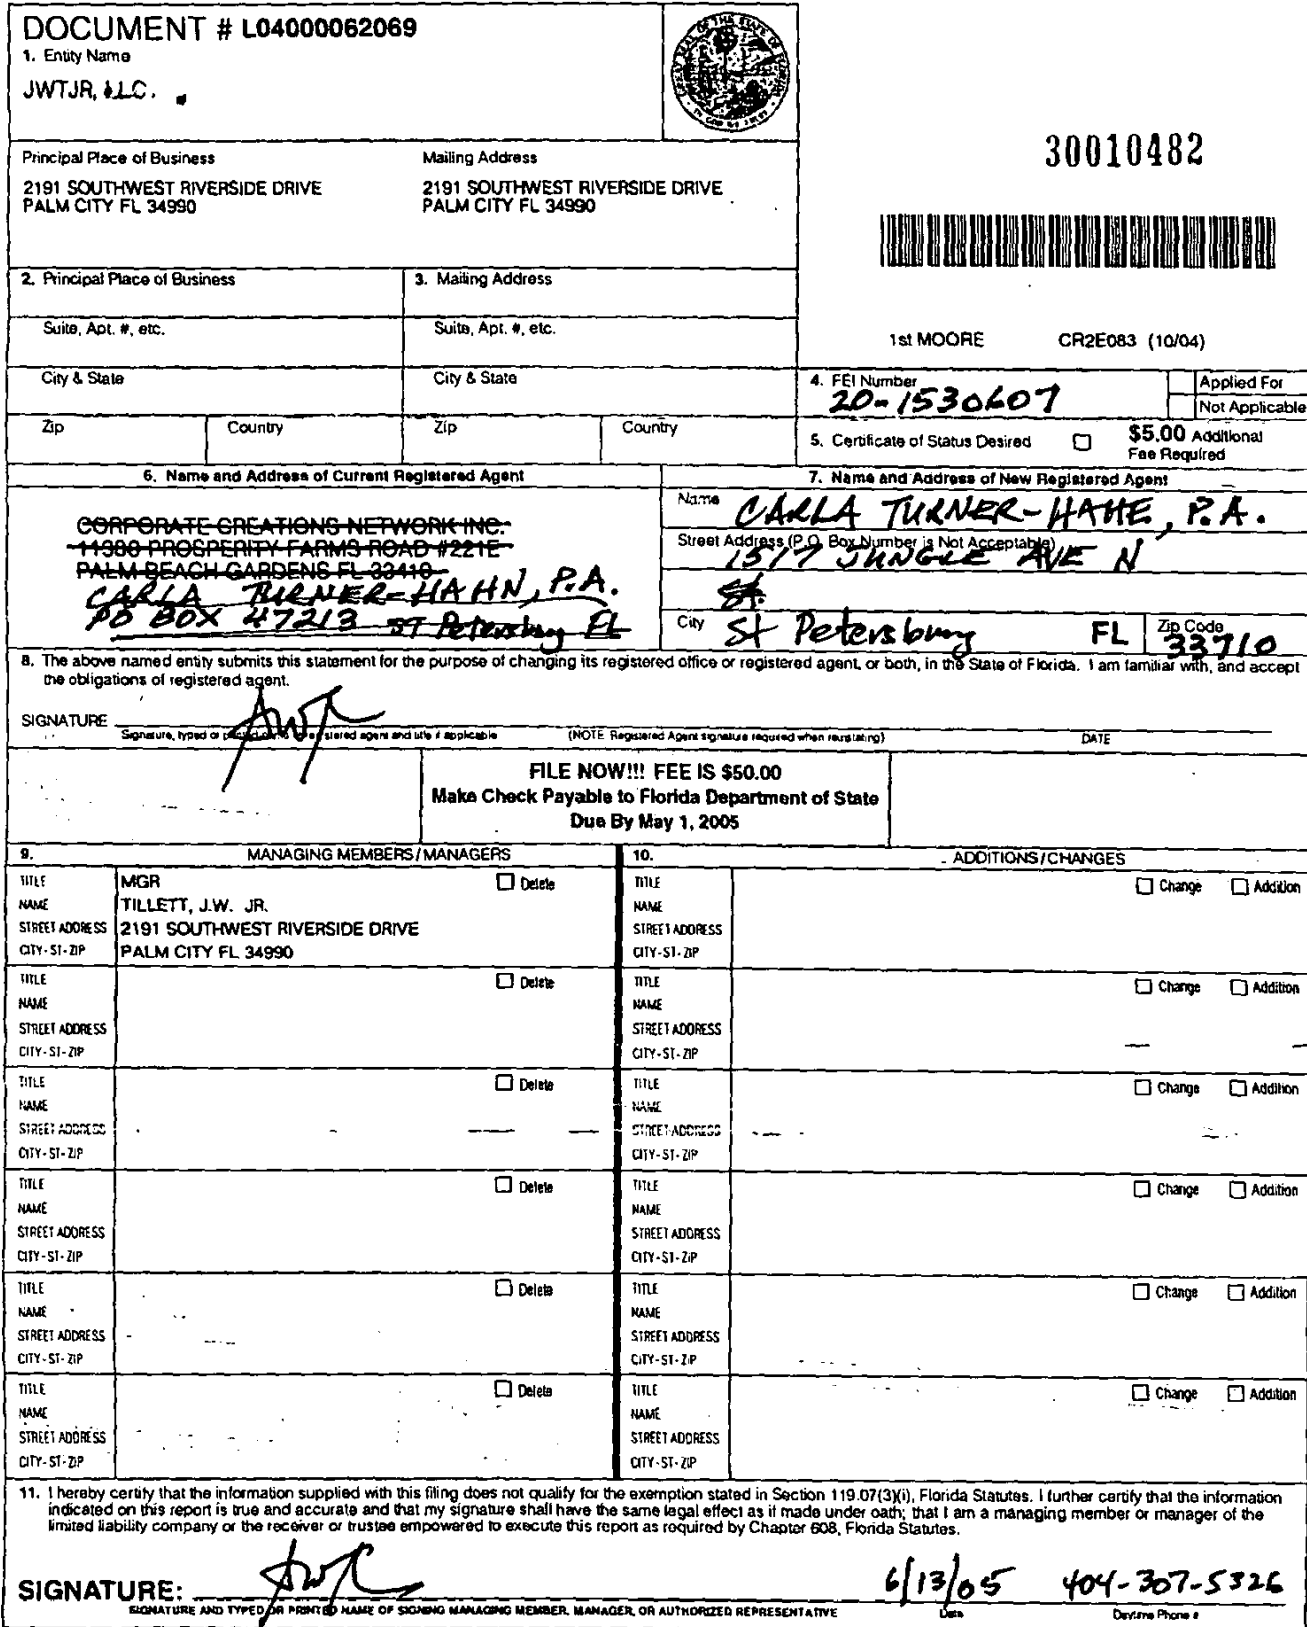 DOCUMENT # L04000062069
1. Entity Name
JWTJR, LLC.
Principal Place of Business
2191 SOUTHWEST RIVERSIDE DRIVE
PALM CITY FL 34990
Mailing Address
2191 SOUTHWEST RIVERSIDE DRIVE
PALM CITY FL 34990
30010482
2. Principal Place of Business
3. Mailing Address
Suite, Apt. #, etc.
Suite, Apt. #, etc.
1st MOORE CR2E083 (10/04)
City & State
City & State
4. FEI Number
20-1530607
Applied For
Not Applicable
Zip
Country
Zip
Country
5. Certificate of Status Desired
$5.00 Additional
Fee Required
6. Name and Address of Current Registered Agent
CORPORATE CREATIONS NETWORK INC.
11380 PROSPERITY FARMS ROAD #221E
PALM BEACH GARDENS FL 33410
CARLA TURNER-HAHN, P.A.
PO BOX 47213 ST Petersburg FL
7. Name and Address of New Registered Agent
Name CARLA TURNER-HAHE, P.A.
Street Address (P.O. Box Number is Not Acceptable)
1517 JUNGLE AVE N
St.
City St Petersburg FL Zip Code 33710
8. The above named entity submits this statement for the purpose of changing its registered office or registered agent, or both, in the State of Florida. I am familiar with, and accept
the obligations of registered agent.
SIGNATURE
Signature, typed or printed name of registered agent and title if applicable (NOTE Registered Agent signature required when reinstating) DATE
FILE NOW!!! FEE IS $50.00
Make Check Payable to Florida Department of State
Due By May 1, 2005
9. MANAGING MEMBERS/MANAGERS
10. ADDITIONS/CHANGES
TITLE MGR Delete
NAME TILLETT, J.W. JR.
STREET ADDRESS 2191 SOUTHWEST RIVERSIDE DRIVE
CITY-ST-ZIP PALM CITY FL 34990
TITLE Change Addition
NAME
STREET ADDRESS
CITY-ST-ZIP
TITLE Delete
NAME
STREET ADDRESS
CITY-ST-ZIP
TITLE Change Addition
NAME
STREET ADDRESS
CITY-ST-ZIP
TITLE Delete
NAME
STREET ADDRESS
CITY-ST-ZIP
TITLE Change Addition
NAME
STREET ADDRESS
CITY-ST-ZIP
TITLE Delete
NAME
STREET ADDRESS
CITY-ST-ZIP
TITLE Change Addition
NAME
STREET ADDRESS
CITY-ST-ZIP
TITLE Delete
NAME
STREET ADDRESS
CITY-ST-ZIP
TITLE Change Addition
NAME
STREET ADDRESS
CITY-ST-ZIP
TITLE Delete
NAME
STREET ADDRESS
CITY-ST-ZIP
TITLE Change Addition
NAME
STREET ADDRESS
CITY-ST-ZIP
11. I hereby certify that the information supplied with this filing does not qualify for the exemption stated in Section 119.07(3)(i), Florida Statutes. I further certify that the information
indicated on this report is true and accurate and that my signature shall have the same legal effect as if made under oath; that I am a managing member or manager of the
limited liability company or the receiver or trustee empowered to execute this report as required by Chapter 608, Florida Statutes.
SIGNATURE: 6/13/05 404-307-5326
SIGNATURE AND TYPED OR PRINTED NAME OF SIGNING MANAGING MEMBER, MANAGER, OR AUTHORIZED REPRESENTATIVE Date Daytime Phone #